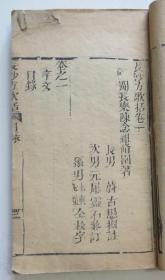 長沙方歌括卷一
閩長樂陳念祖修園著
長男 蔚古愚擬註
次男 元犀靈石參訂
孫男 心典 心蘭 仝校字
卷之一
序文
目錄
長沙方歌括 目錄